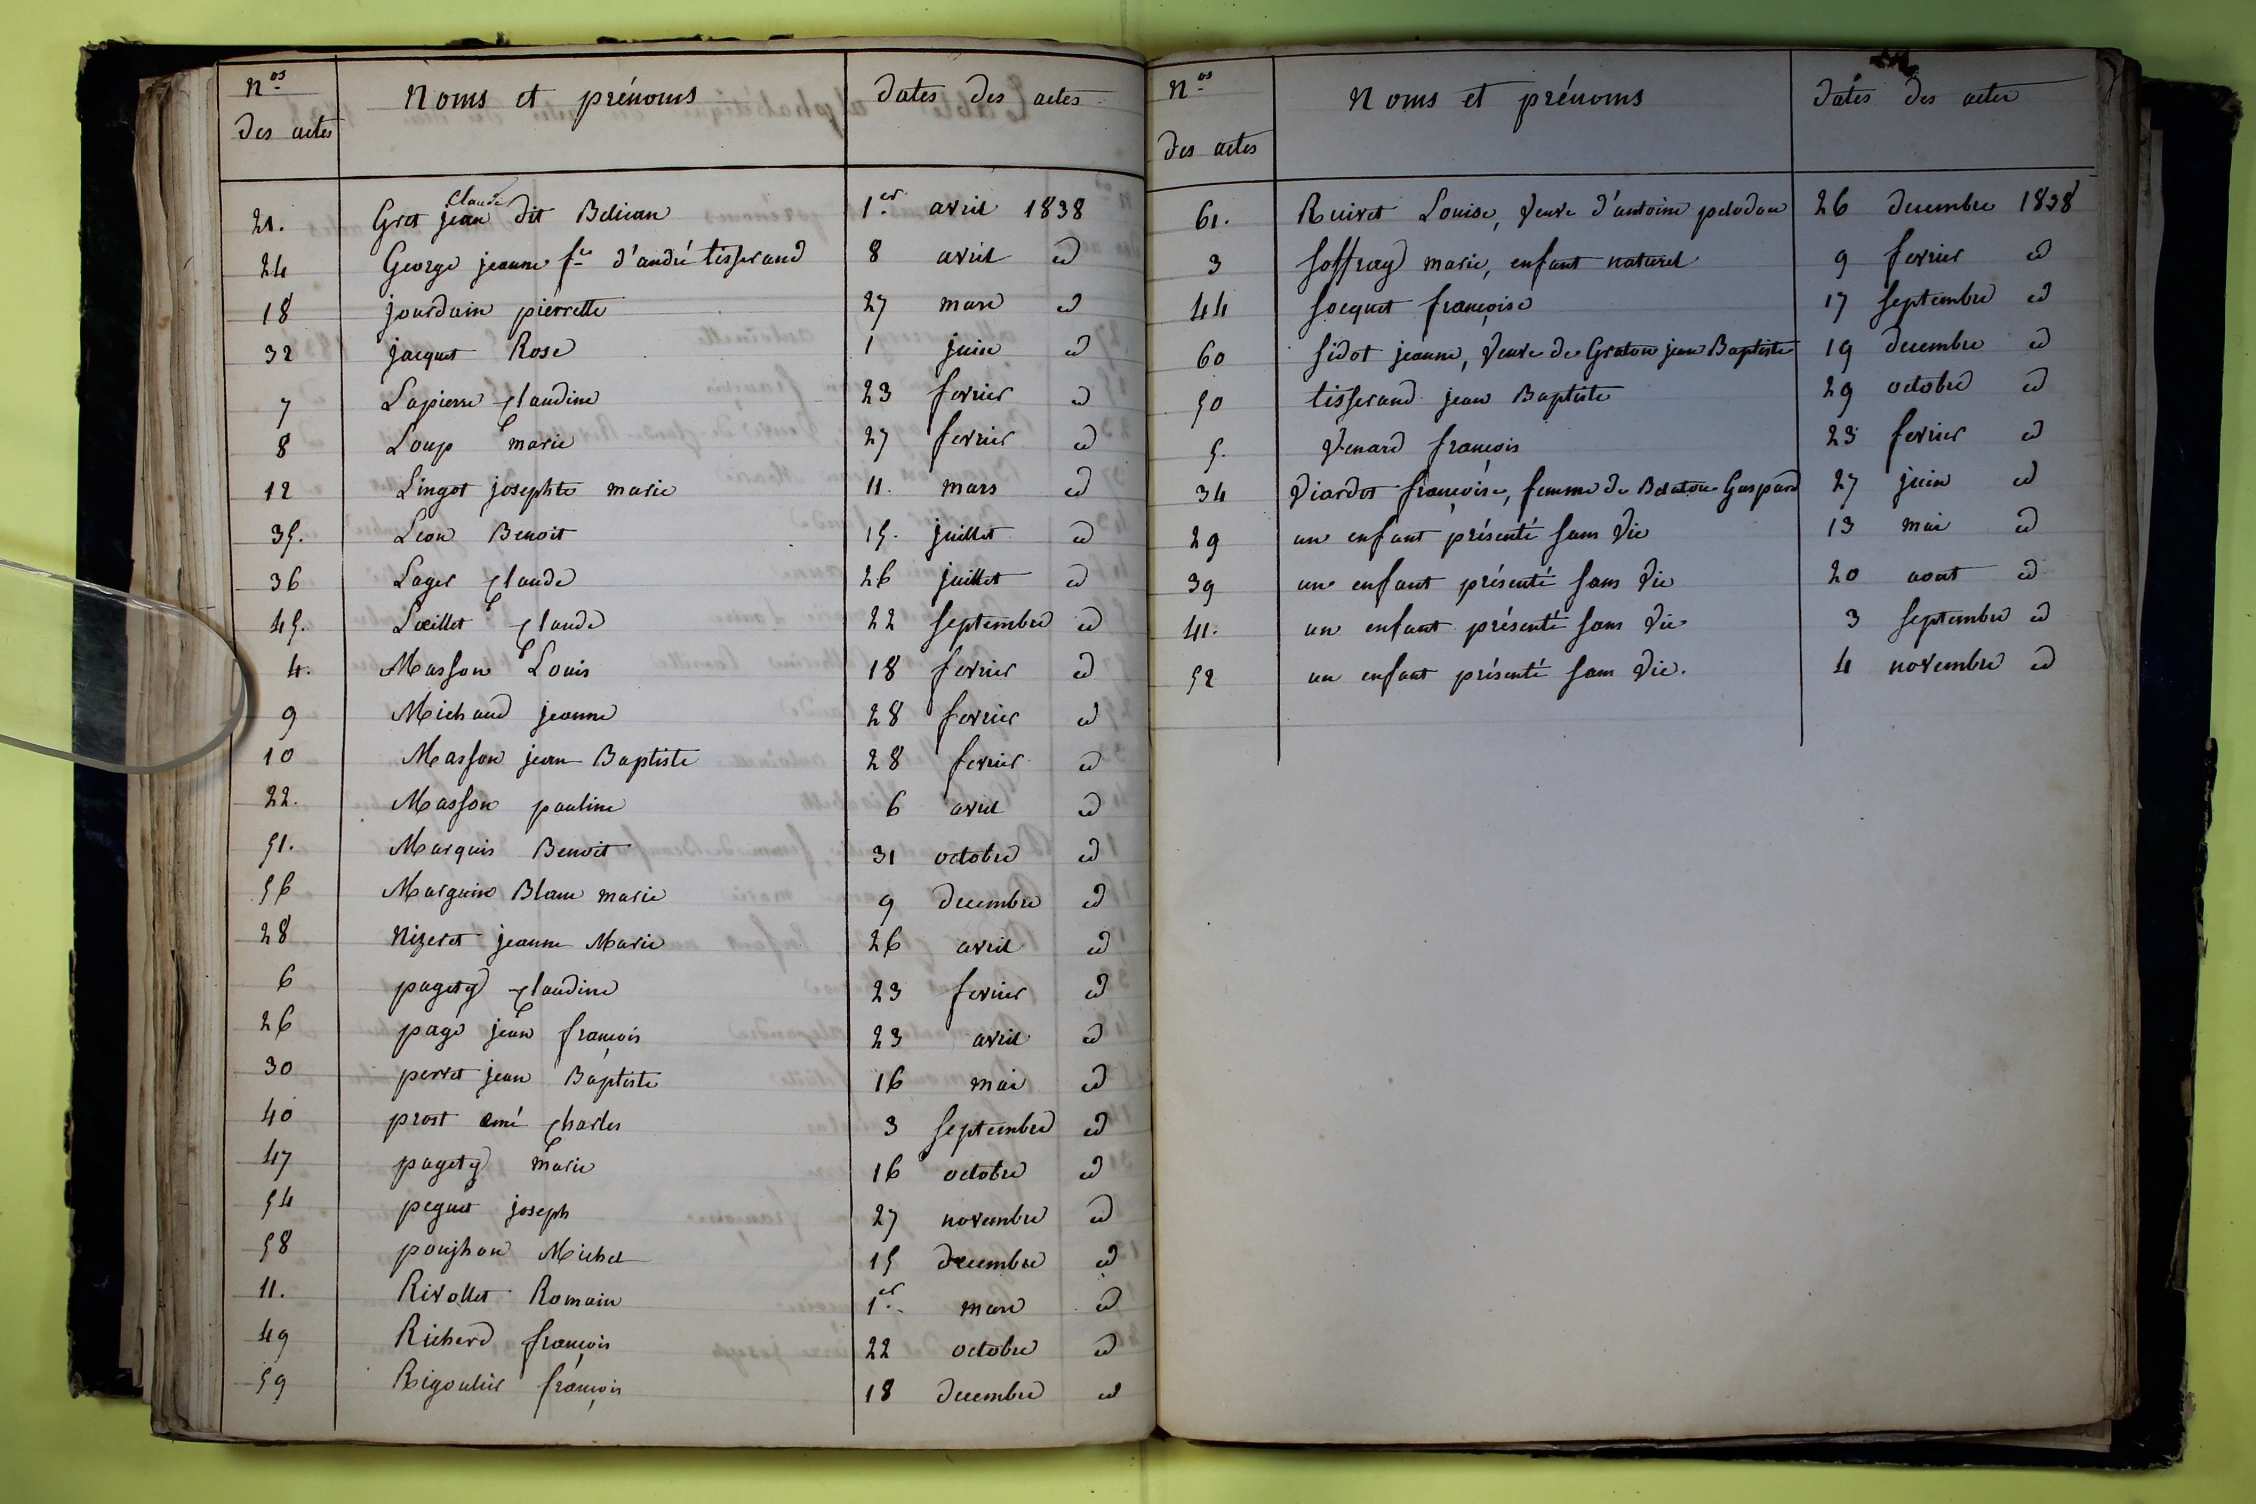 Nos
des actes
Noms et prénoms
Dates des actes
21. Gret jean Claude dit Belican 1er avril 1838
24 George jeanne fe d'andré tisserand 8 avril id
18 jourdain pierrette 27 mars id
32 jacquet Rose 1 juin id
7 Lapierre Claudine 23 fevrier id
8 Loup marie 27 fevrier id
12 Lingot josephte marie 11. mars id
35. Leon Benoit 15. juillet id
36 Lager Claude 26 juillet id
45. Lœillet Claude 22 septembre id
4. Masson Louis 18 fevrier id
9 Michaud jeanne 28 fevrier id
10 Masson jean Baptiste 28 fevrier id
22. Masson pauline 6 avril id
51. Marquis Benoit 31 octobre id
56 Marguin Blanc marie 9 decembre id
28 Nizeret jeanne Marie 26 avril id
6 pagety Claudine 23 fevrier id
26 page jean françois 23 avril id
30 perret jean Baptiste 16 mai id
40 prost amé Charles 3 septembre id
47 pagety marie 16 octobre id
54 peguet joseph 27 novembre id
58 Michel 15 decembre id
11. Rivollet Romain 1er mars id
49 Richard françois 22 octobre id
59 Rigoulier françois 18 decembre id
Nos
des actes
Noms et prénoms
Dates des actes
61. Ruivet Louise, Veuve d'antoine pelodon 26 decembre 1838
3 Soffray marie, enfant naturel 9 fevrier id
44 Socquet françoise 17 septembre id
60 Sidot jeanne, Veuve de Graton jean Baptiste 19 decembre id
50 tisserand jean Baptiste 29 octobre id
5. Venard françois 23 fevrier id
34 Viardot françoise, femme de Belaton Gaspard 27 juin id
29 un enfant présenté sans Vie 13 mai id
39 un enfant présenté sans Vie 20 aout id
41. un enfant présenté sans Vie 3 septembre id
52 un enfant présenté sans Vie. 4 novembre id